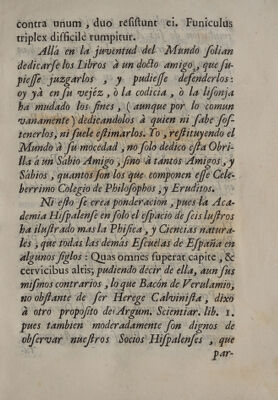 contra unum, duo resistunt ei. Funiculus
triplex difficilè rumpitur.
Allà en la juventud del Mundo solian
dedicarse los Libros à un docto amigo, que su-
piesse juzgarlos, y pudiesse defenderlos:
oy yà en su vejéz, ò la codicia, ò la lisonja
ha mudado los fines, (aunque por lo comun
vanamente) dedicandolos à quien ni sabe sos-
tenerlos, ni suele estimarlos. Yo, restituyendo el
Mundo à su mocedad, no solo dedico esta Obri-
lla à un Sabio Amigo, sino à tantos Amigos, y
Sábios, quantos son los que componen esse Cele-
berrimo Colegio de Philosophos, y Eruditos.
Ni esto se crea ponderacion, pues la Aca-
demia Hispalense en solo el espacio de seis lustros
ha ilustrado mas la Phisica, y Ciencias natura-
les, que todas las demás Escuelas de España en
algunos siglos: Quas omnes superat capite, &
cervicibus altis; pudiendo decir de ella, aun sus
mismos contrarios, lo que Bacón de Verulamio,
no obstante de ser Herege Calvinista, dixo
à otro proposito de: Argum. Scientiar. lib. 1.
pues tambien moderadamente son dignos de
observar nuestros Socios Hispalenses, que
par-